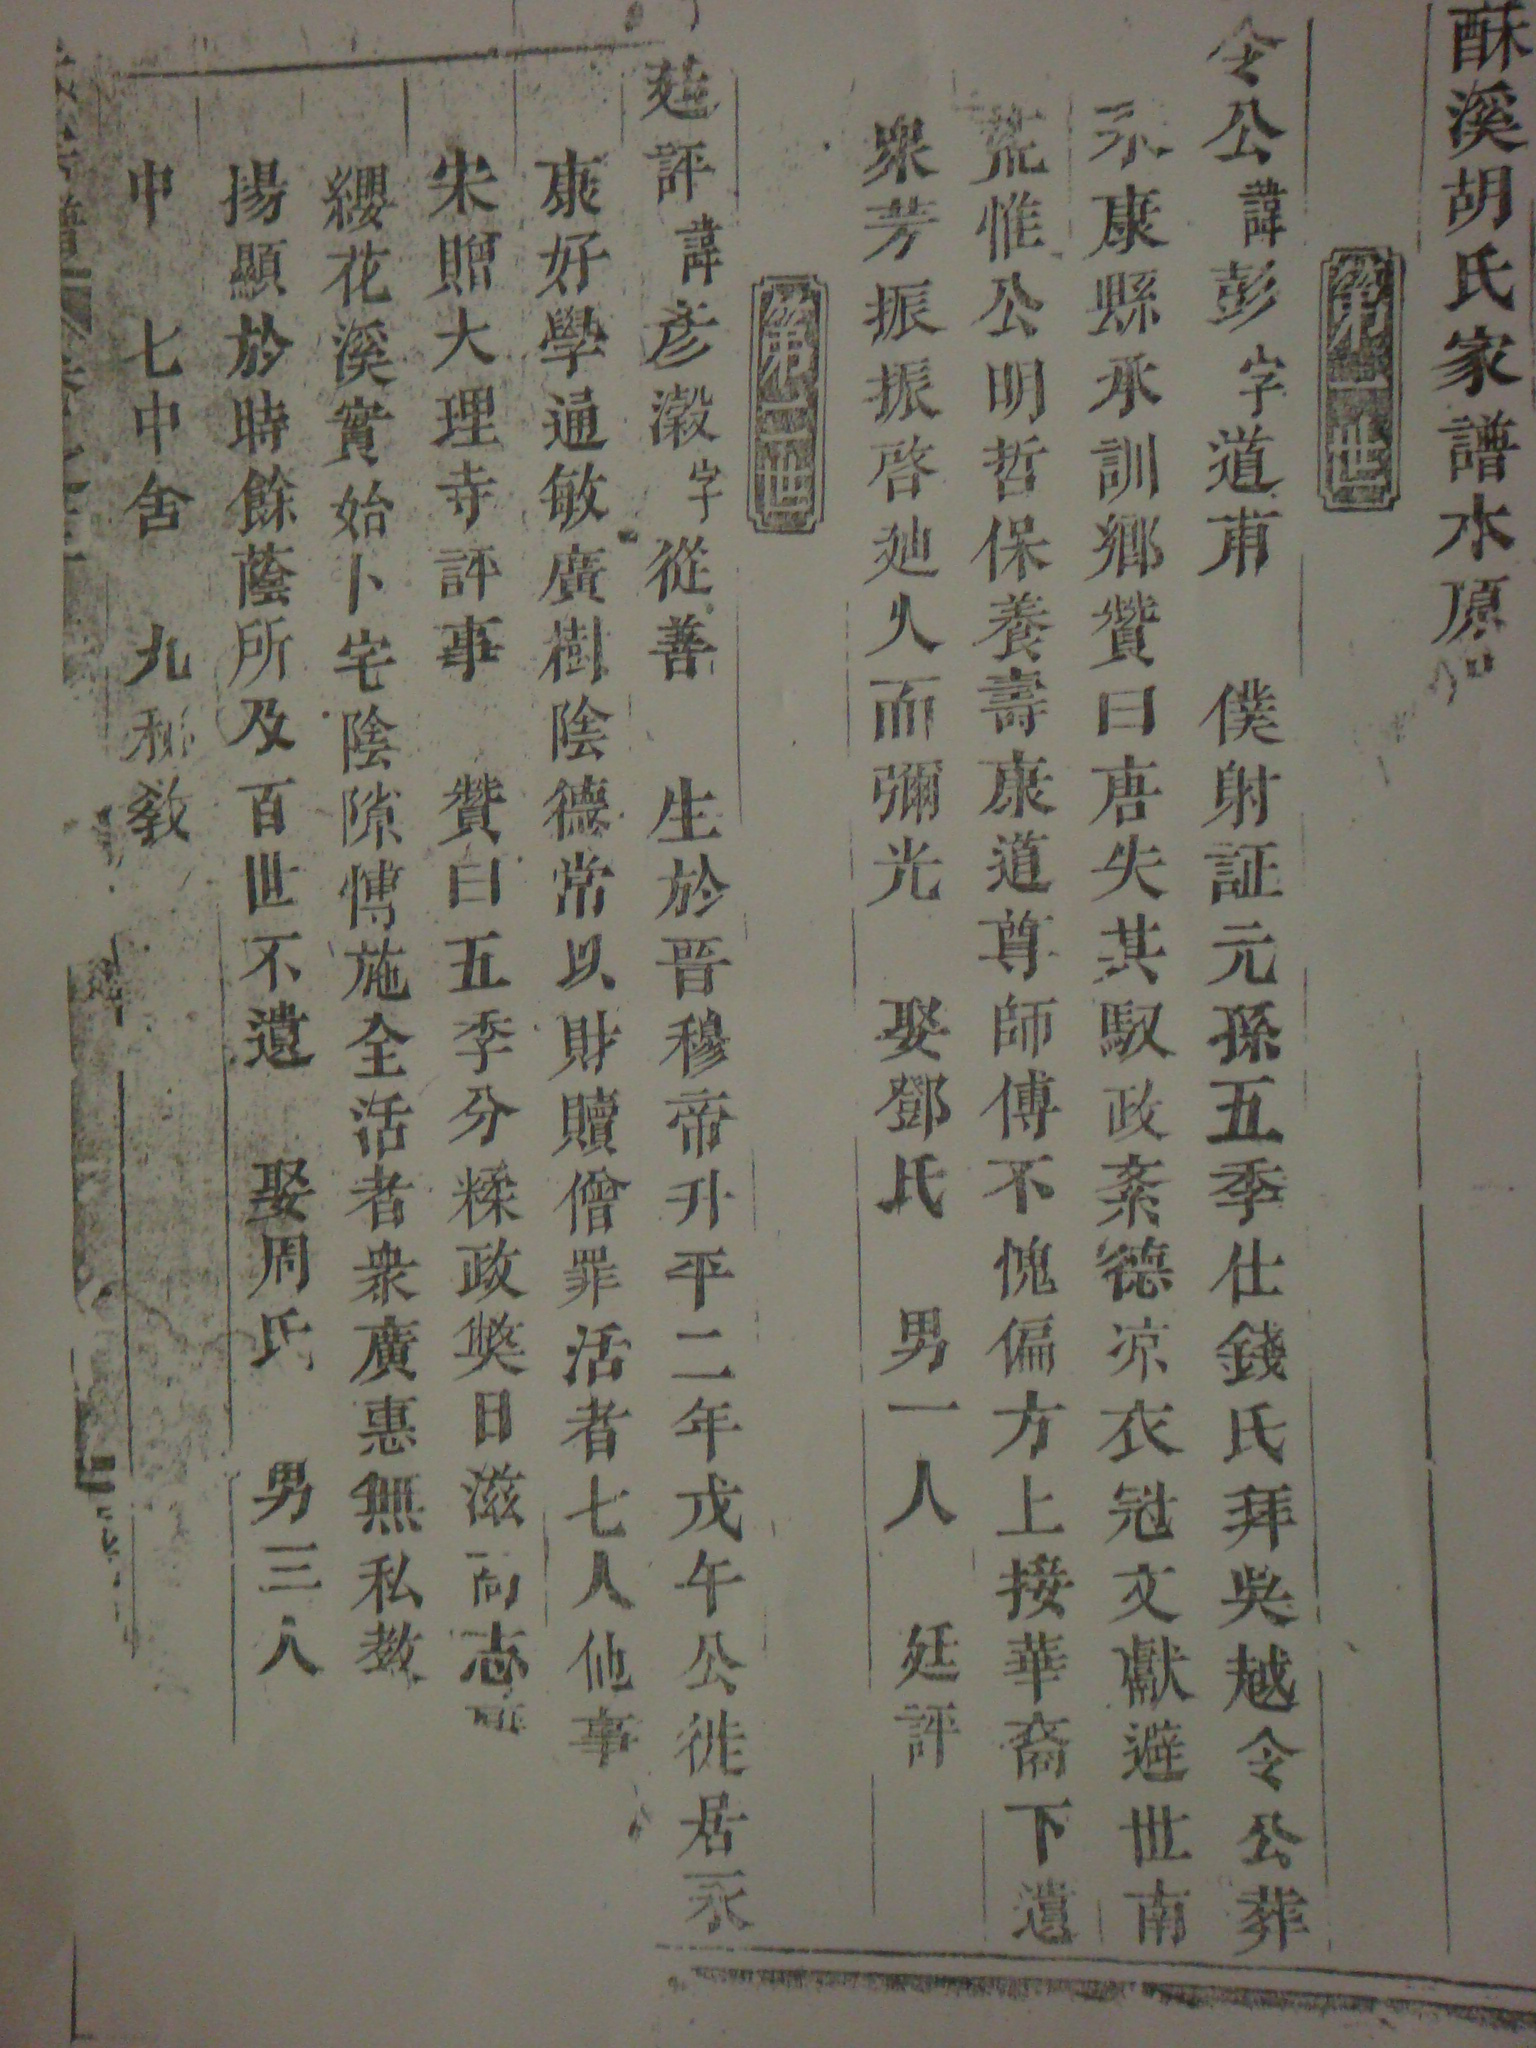 酥溪胡氏家譜水源
第一世
令公諱彭字道甫　僕射証元孫五季仕錢氏拜吳越令公葬
永康縣承訓鄉贊曰唐失其馭政紊德凉衣冠文獻避世南
荒惟公明哲保養壽康道尊師傅不愧偏方上接華裔下遺
衆芳振振啓廸久而彌光　娶鄧氏　男一人　廷評
第二世
廷評諱彥瀔字從善　生於晋穆帝升平二年戊午公徙居永
康好學通敏廣樹陰德常以財贖僧罪活者七人他事
宋贈大理寺評事　贊曰五季分糅政獘日滋　志
纓花溪實始卜宅陰隲愽施全活者衆廣惠無私教
揚顯於時餘蔭所及百世不遺　娶周氏　男三人
中　七中舍　九秘教